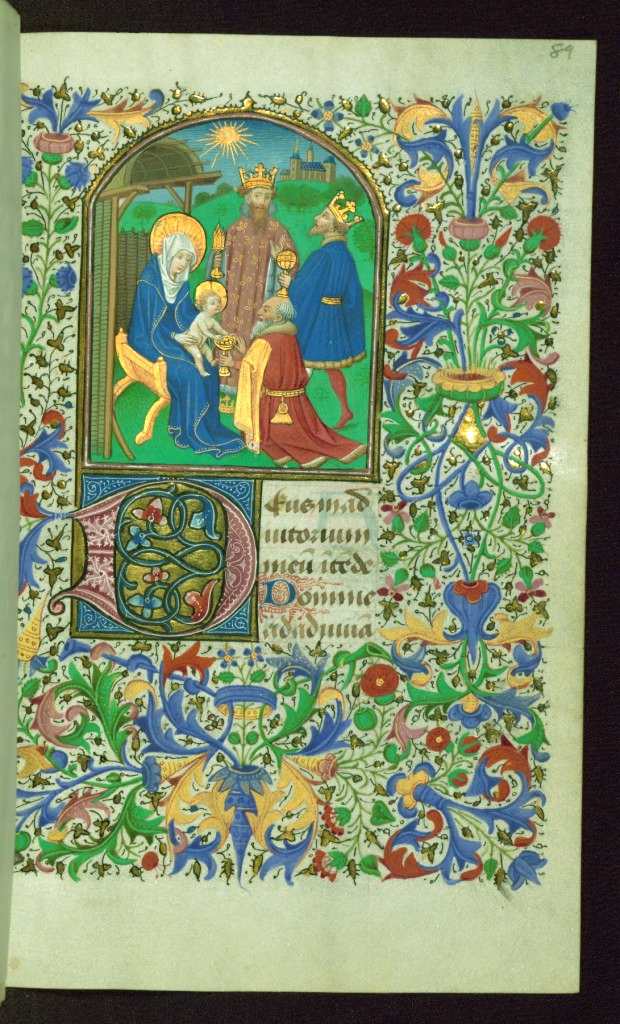 89
Deus in ad
iutorium
meū īte de
Domine
ad adiuua